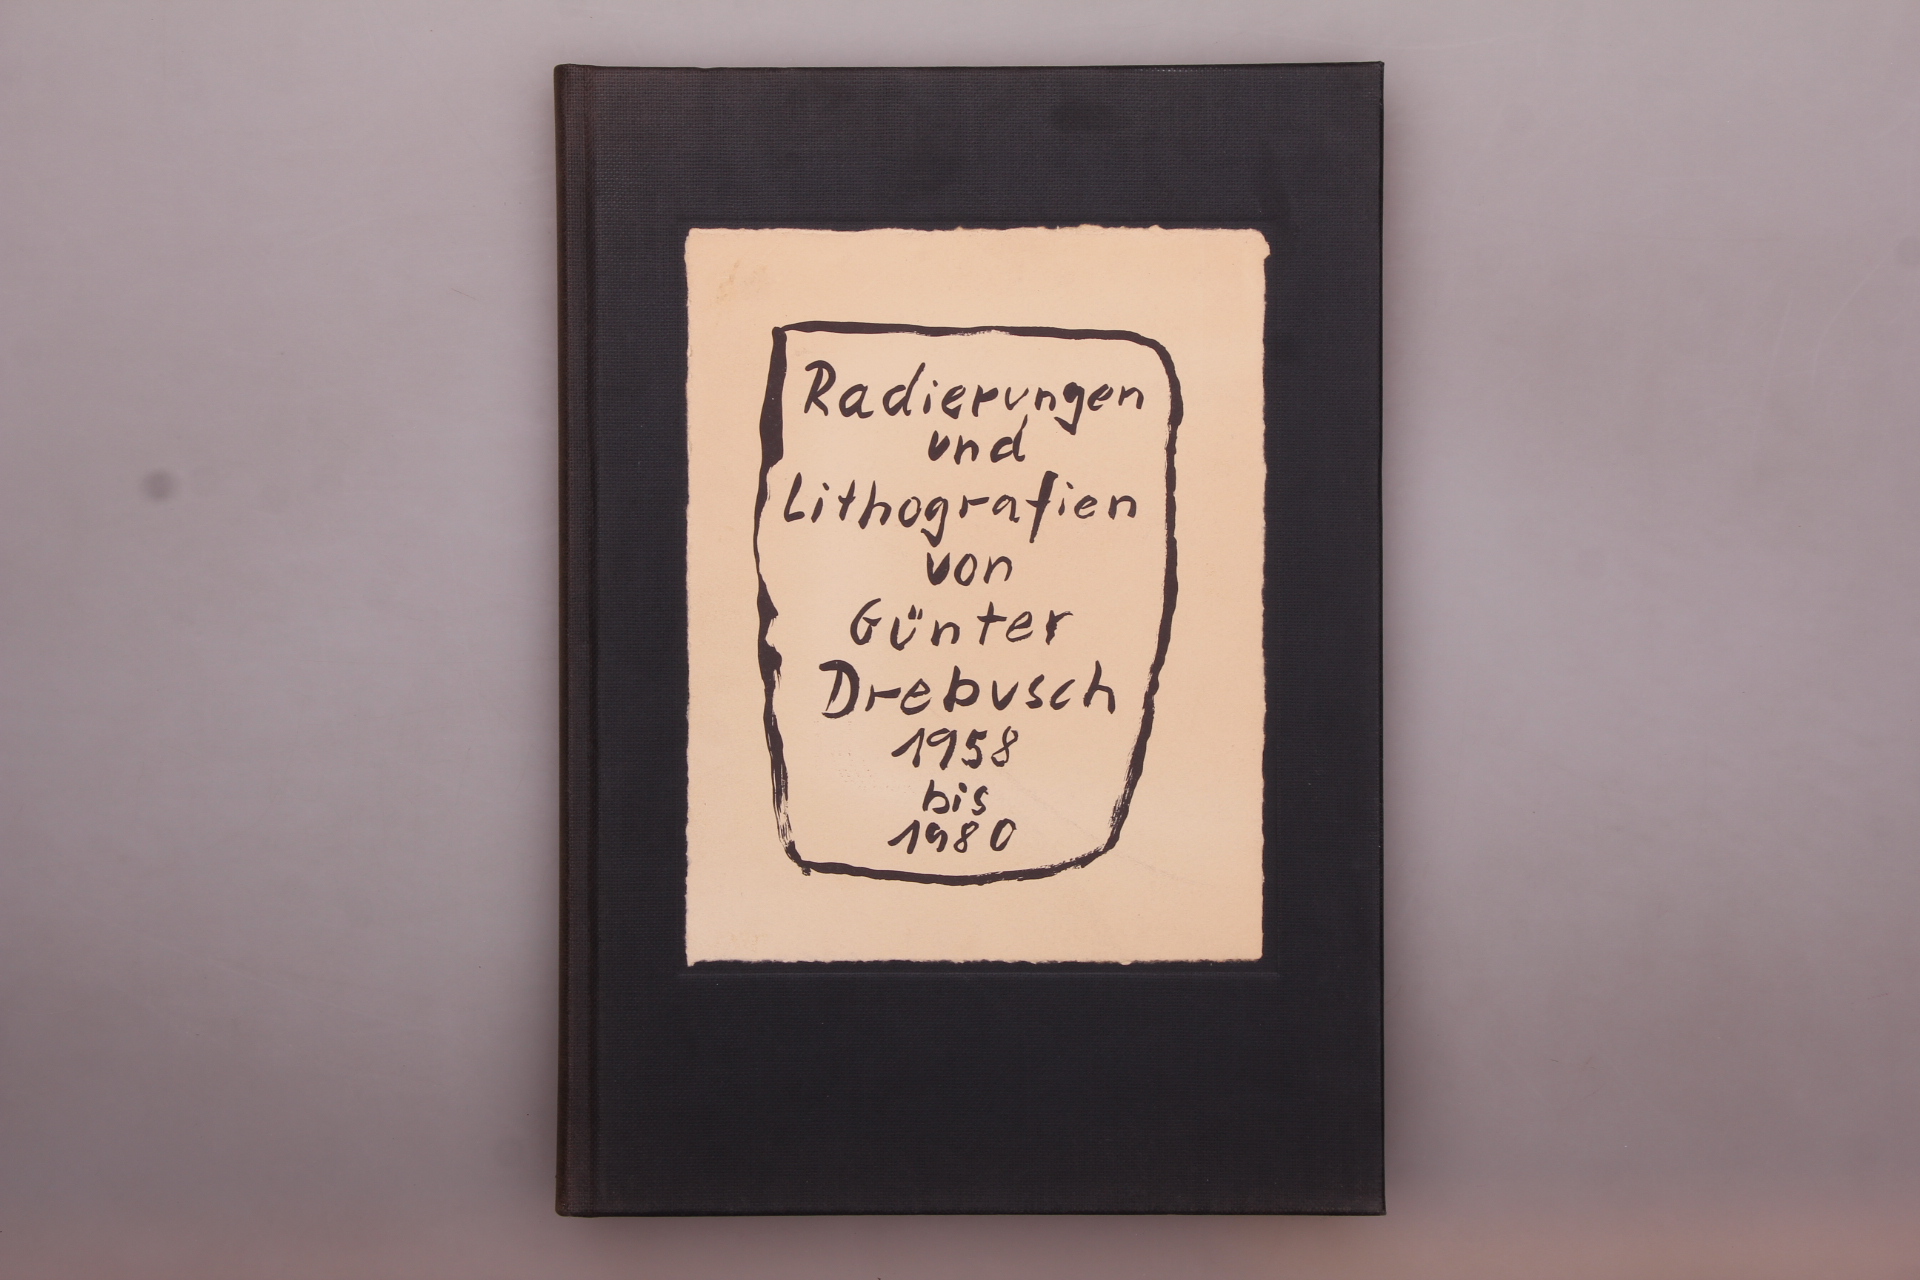 Radierungen
und
Lithografien
von
Günter
Drebusch
1958
bis
1980